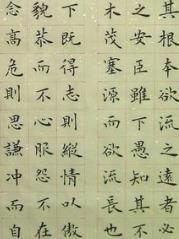 其根本欲流之遠者必
之安臣雖下愚知其不
木茂塞源而欲流長也
下既得志則縱情以傲
貌恭而不心服怨不在
念高危則思謙沖而自